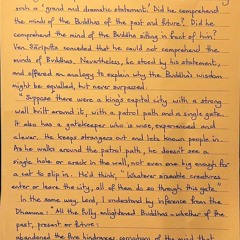 such a 'grand and dramatic statement.' Did he comprehend
the minds of the Buddhas of the past and future? Did he
comprehend the mind of the Buddha sitting in front of him?
Ven Sāriputta conceded that he could not comprehend the
minds of Buddhas. Nevertheless, he stood by his statement,
and offered an analogy to explain why the Buddha's wisdom
might be equalled, but never surpassed:
"Suppose there were a king's capital city with a strong
wall built around it, with a patrol path and a single gate.
It also has a gatekeeper who is wise, experienced and
clever. He keeps strangers out and lets known people in.
As he walks around the patrol path, he doesn't see a
single hole or crack in the wall, not even one big enough for
a cat to slip in. He'd think, 'Whatever sizeable creatures
enter or leave the city, all of them do so through this gate.'
In the same way, Lord, I understand by inference from the
Dhamma: 'All the fully enlightened Buddhas – whether of the
past, present or future:
abandoned the five hindrances corruptions of the mind that